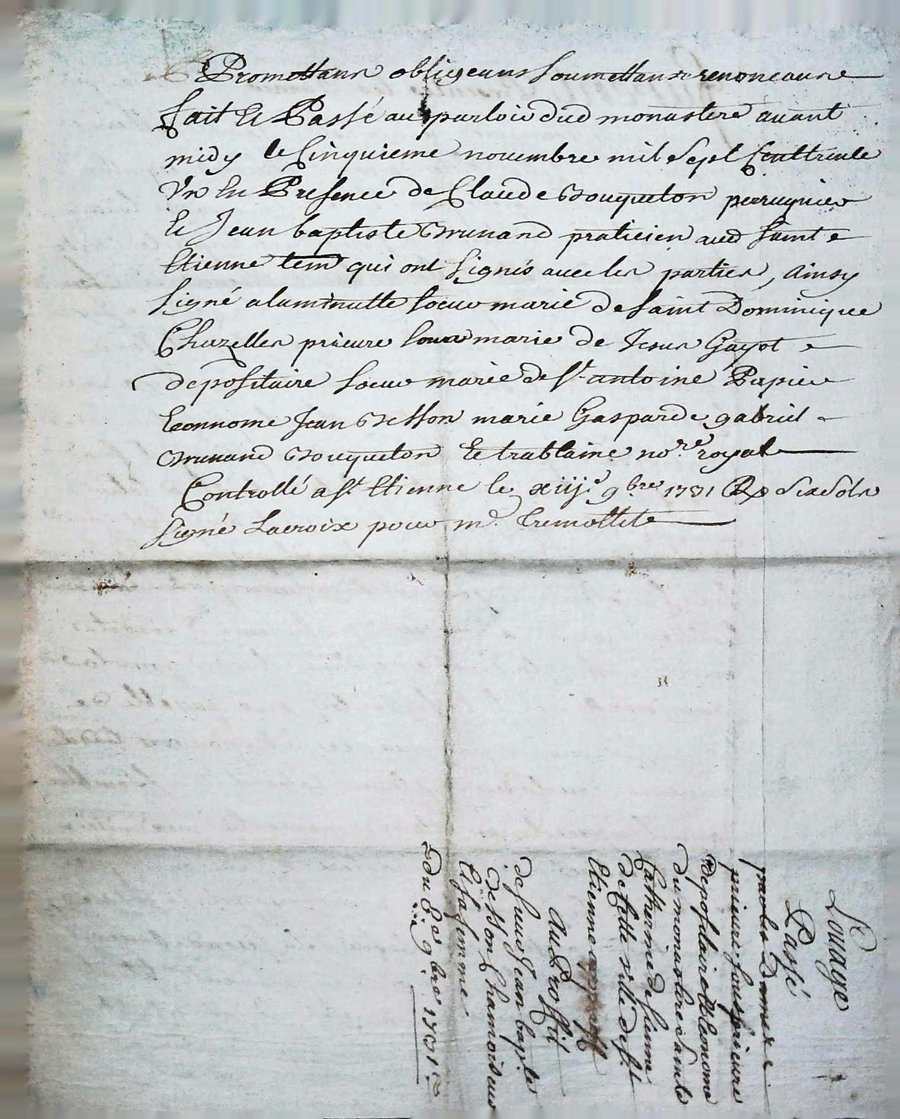 Promettans obligeans soumettans renonceans
fait Et Passé au parloir dud monastere avant
midy le Cinquieme novembre mil sept Cent trente
Un En Presence de Claude Bouqueton perruquier
Et Jean baptiste Brunand praticien aud saint
Etienne tem qui ont signés avec les parties, ainsy
signé a la minutte soeur marie de saint Dominique
Chazelles prieure soeur marie de Jesus Gayot
depositaire soeur marie de St antoine Papier
Econnome Jean Besson marie Gasparde gabriel
Brunand Bouqueton Et trablaine nore royal
Controllé a St Etienne le xiije 9bre 1731 R six sols
signé Lacroix pour mr Tremollet
Louage
Passé
par les Dames
prieure souprieure
depositaire et Econome
du monastere sainte
Catherine de sienne
de cette ville de St
Etienne
Au Proffit
de sieur Jean bapte
Besson Chamoiseur
Et sa femme
Du 5e 9bre 1731